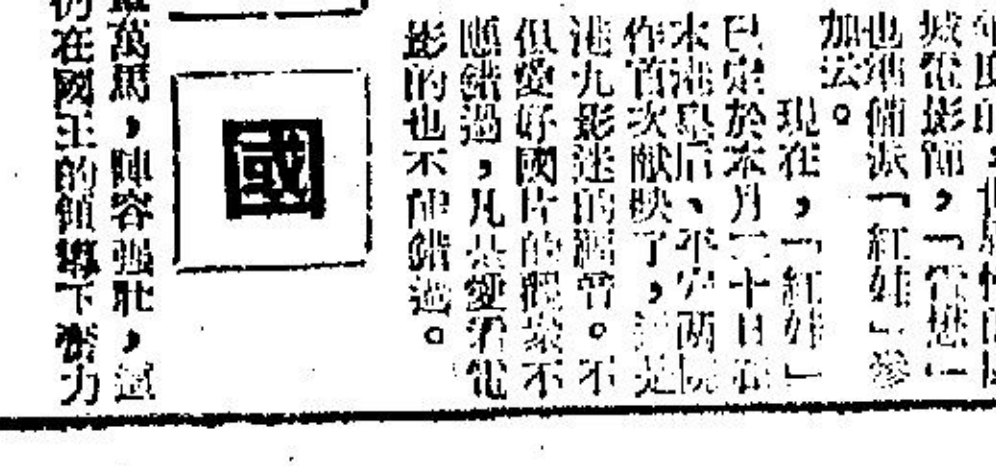 城電影節，
也准備派「紅娃」參
加去。
現在，「紅娃」
已定於本月二十日在
港皇后、平安兩院
作首次献映了，這是
港九影迷的福音。不
但愛好國片的觀衆不
應錯過，凡是愛看電
影的也不能錯過。
國
萬馬，陣容强壯，
仍在國王的領導下